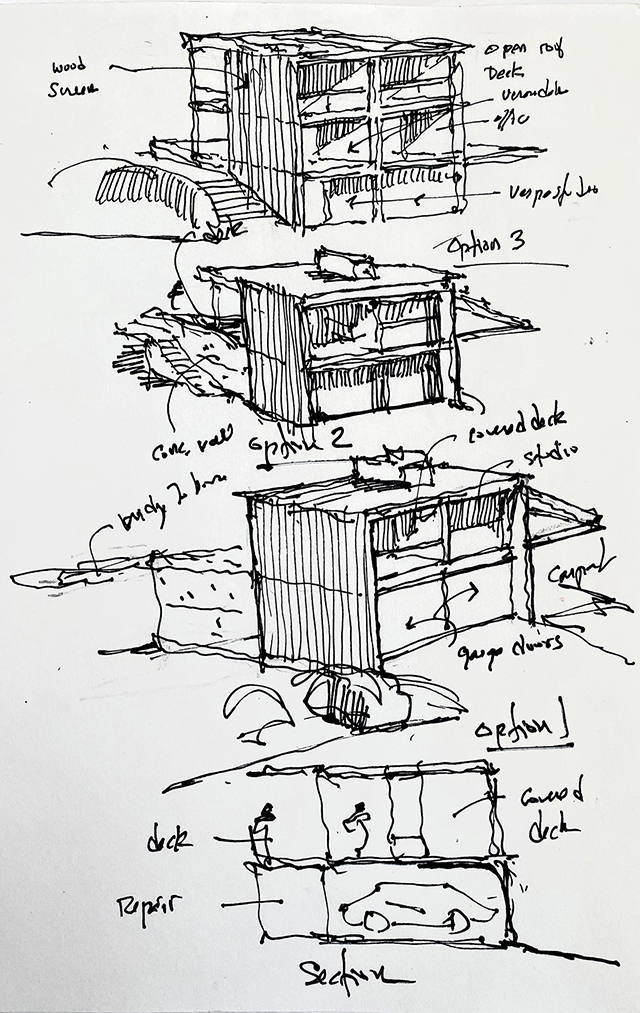 wood
screen
open roof
Deck
verandah
office
vespa studio
Deck
Option 3
conc. wall
Option 2
covered deck
studio
bridge to house
Carport
garage doors
Option 1
deck
covered
deck
Repair
Section